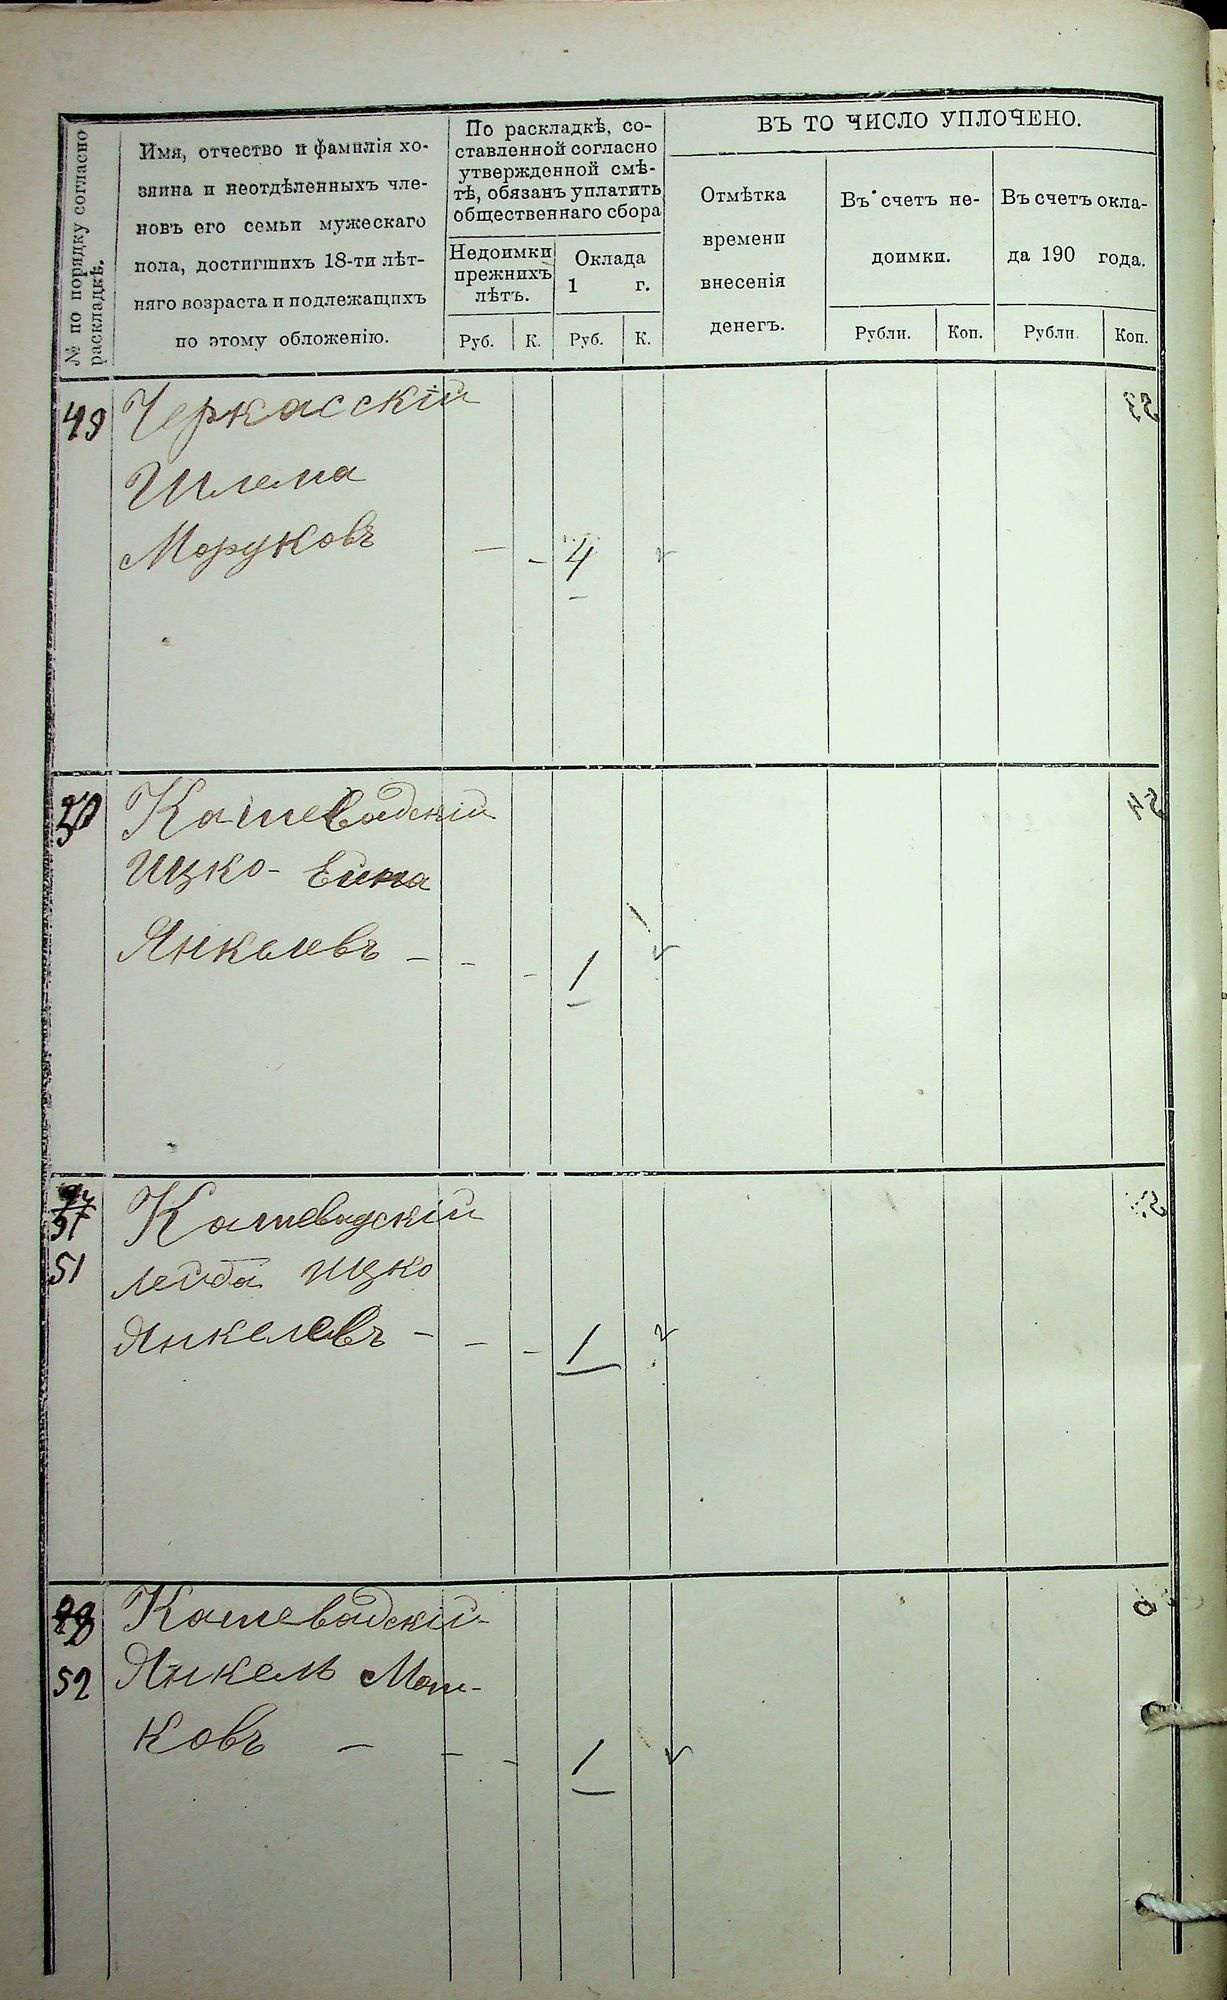 № по порядку согласно
раскладкѣ.
Имя, отчество и фамилія хо-
зяина и неотдѣленныхъ чле-
новъ его семьи мужескаго
пола, достигшихъ 18-ти лѣт-
няго возраста и подлежащихъ
по этому обложенію.
По раскладкѣ, со-
ставленной согласно
утвержденной смѣ-
тѣ, обязанъ уплатить
общественнаго сбора
Недоимки
прежнихъ
лѣтъ.
Руб. К.
Оклада
1 г.
Руб. К.
ВЪ ТО ЧИСЛО УПЛОЧЕНО.
Отмѣтка
времени
внесенія
денегъ.
Въ счетъ не-
доимки.
Рубли. Коп.
Въ счетъ окла-
да 190 года.
Рубли. Коп.
49 Черкасскій
Шлема
Моруковъ — - 4
50 Кашевадскій
Ицко- Ейна
Янкелевъ - - - 1
51 Кашевадскій
51 Лейба Ицко
Янкелевъ - - - 1
Кашевадскій
52 Янкель Мош-
ковъ — - - 1